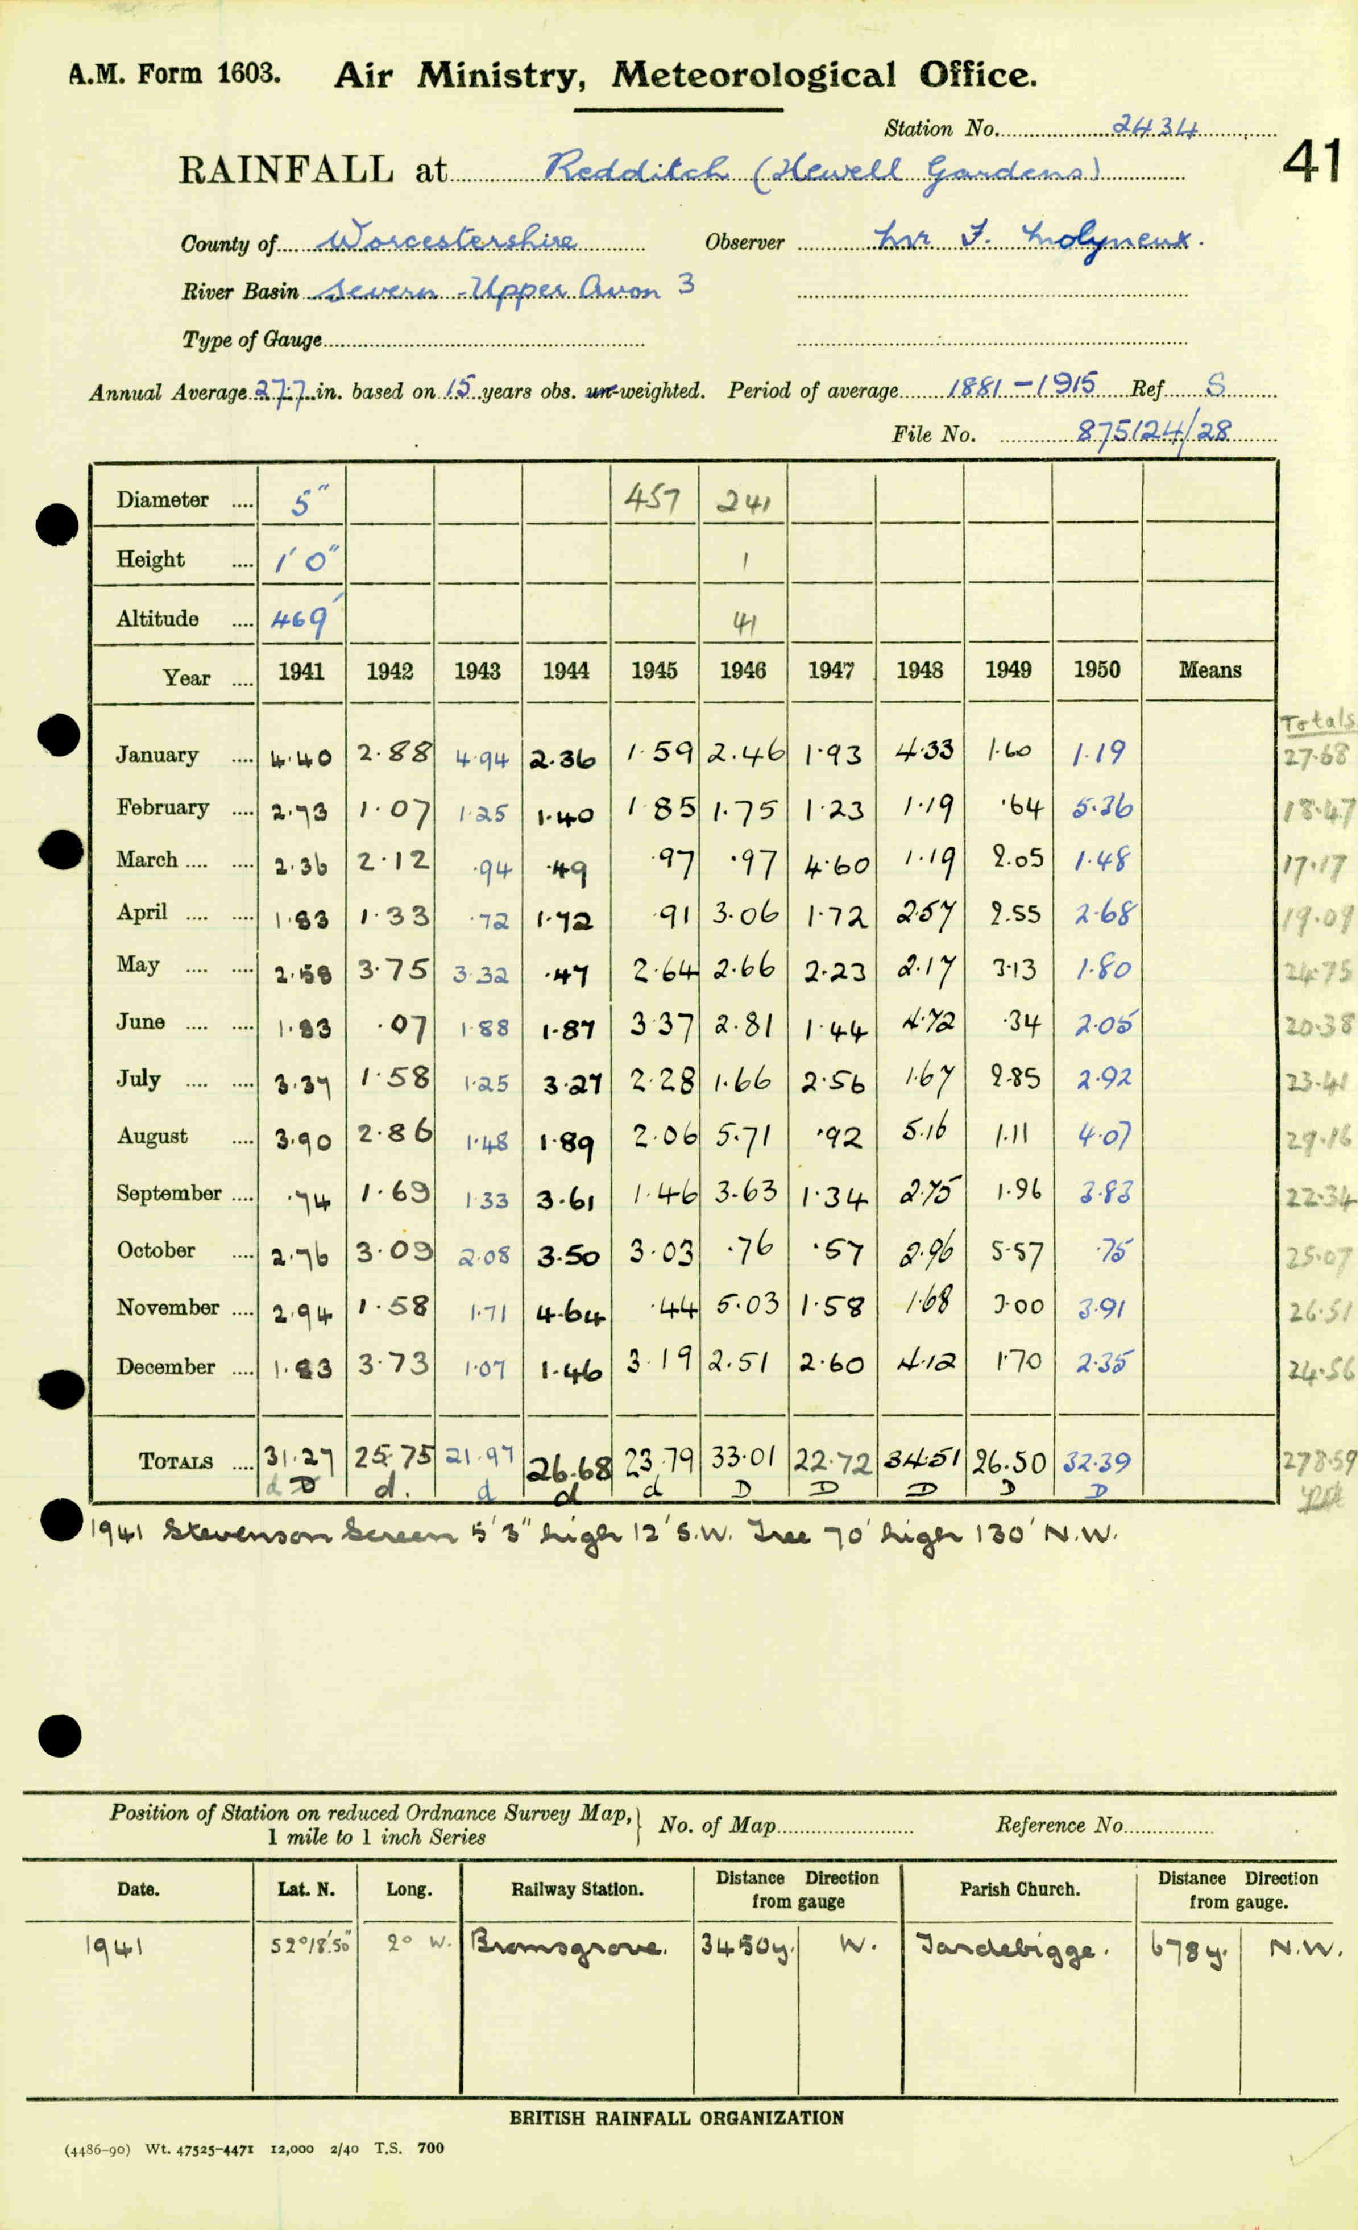 A.M. Form 1603. Air Ministry, Meteorological Office.
Station No. 2434
41
RAINFALL at Redditch (Hewell Gardens)
County of Worcestershire Observer Mr F. Molyneux.
River Basin Severn - Upper Avon 3
Type of Gauge
Annual Average 27.7 in. based on 15 years obs. un-weighted. Period of average 1881-1915 Ref S
File No. 875124/28
Diameter .... 5" 457 241
Height .... 1' 0" 1
Altitude .... 469' 41
Year .... 1941 1942 1943 1944 1945 1946 1947 1948 1949 1950 Means
Totals
January .... 4.40 2.88 4.94 2.36 1.59 2.46 1.93 4.33 1.60 1.19 27.68
February .... 2.73 1.07 1.25 1.40 1.85 1.75 1.23 1.19 .64 5.36 18.47
March .... .... 2.36 2.12 .94 .49 .97 .97 4.60 1.19 2.05 1.48 17.17
April .... .... 1.83 1.33 .72 1.72 .91 3.06 1.72 2.57 2.55 2.68 19.09
May .... .... 2.58 3.75 3.32 .47 2.64 2.66 2.23 2.17 3.13 1.80 24.75
June .... .... 1.83 .07 1.88 1.87 3.37 2.81 1.44 4.72 .34 2.05 20.38
July .... .... 3.37 1.58 1.25 3.27 2.28 1.66 2.56 1.67 2.85 2.92 23.41
August .... 3.90 2.86 1.48 1.89 2.06 5.71 .92 5.16 1.11 4.07 29.16
September .... .74 1.69 1.33 3.61 1.46 3.63 1.34 2.75 1.96 3.83 22.34
October .... 2.76 3.09 2.08 3.50 3.03 .76 .57 2.96 5.57 .75 25.07
November .... 2.94 1.58 1.71 4.64 .44 5.03 1.58 1.68 3.00 3.91 26.51
December .... 1.83 3.73 1.07 1.46 3.19 2.51 2.60 4.12 1.70 2.35 24.56
TOTALS .... 31.27 25.75 21.97 26.68 23.79 33.01 22.72 34.51 26.50 32.39 278.59
d D d. d d d D D D D D
1941 Stevenson Screen 5'3" high 12' S.W. Tree 70' high 130' N.W.
Position of Station on reduced Ordnance Survey Map, 1 mile to 1 inch Series No. of Map Reference No.
Date. Lat. N. Long. Railway Station. Distance Direction from gauge Parish Church. Distance Direction from gauge.
1941 52°18'50" 2° W. Bromsgrove. 3450y. W. Tardebigge. 678y. N.W.
BRITISH RAINFALL ORGANIZATION
(4486-90) Wt. 47525-4471 12,000 2/40 T.S. 700